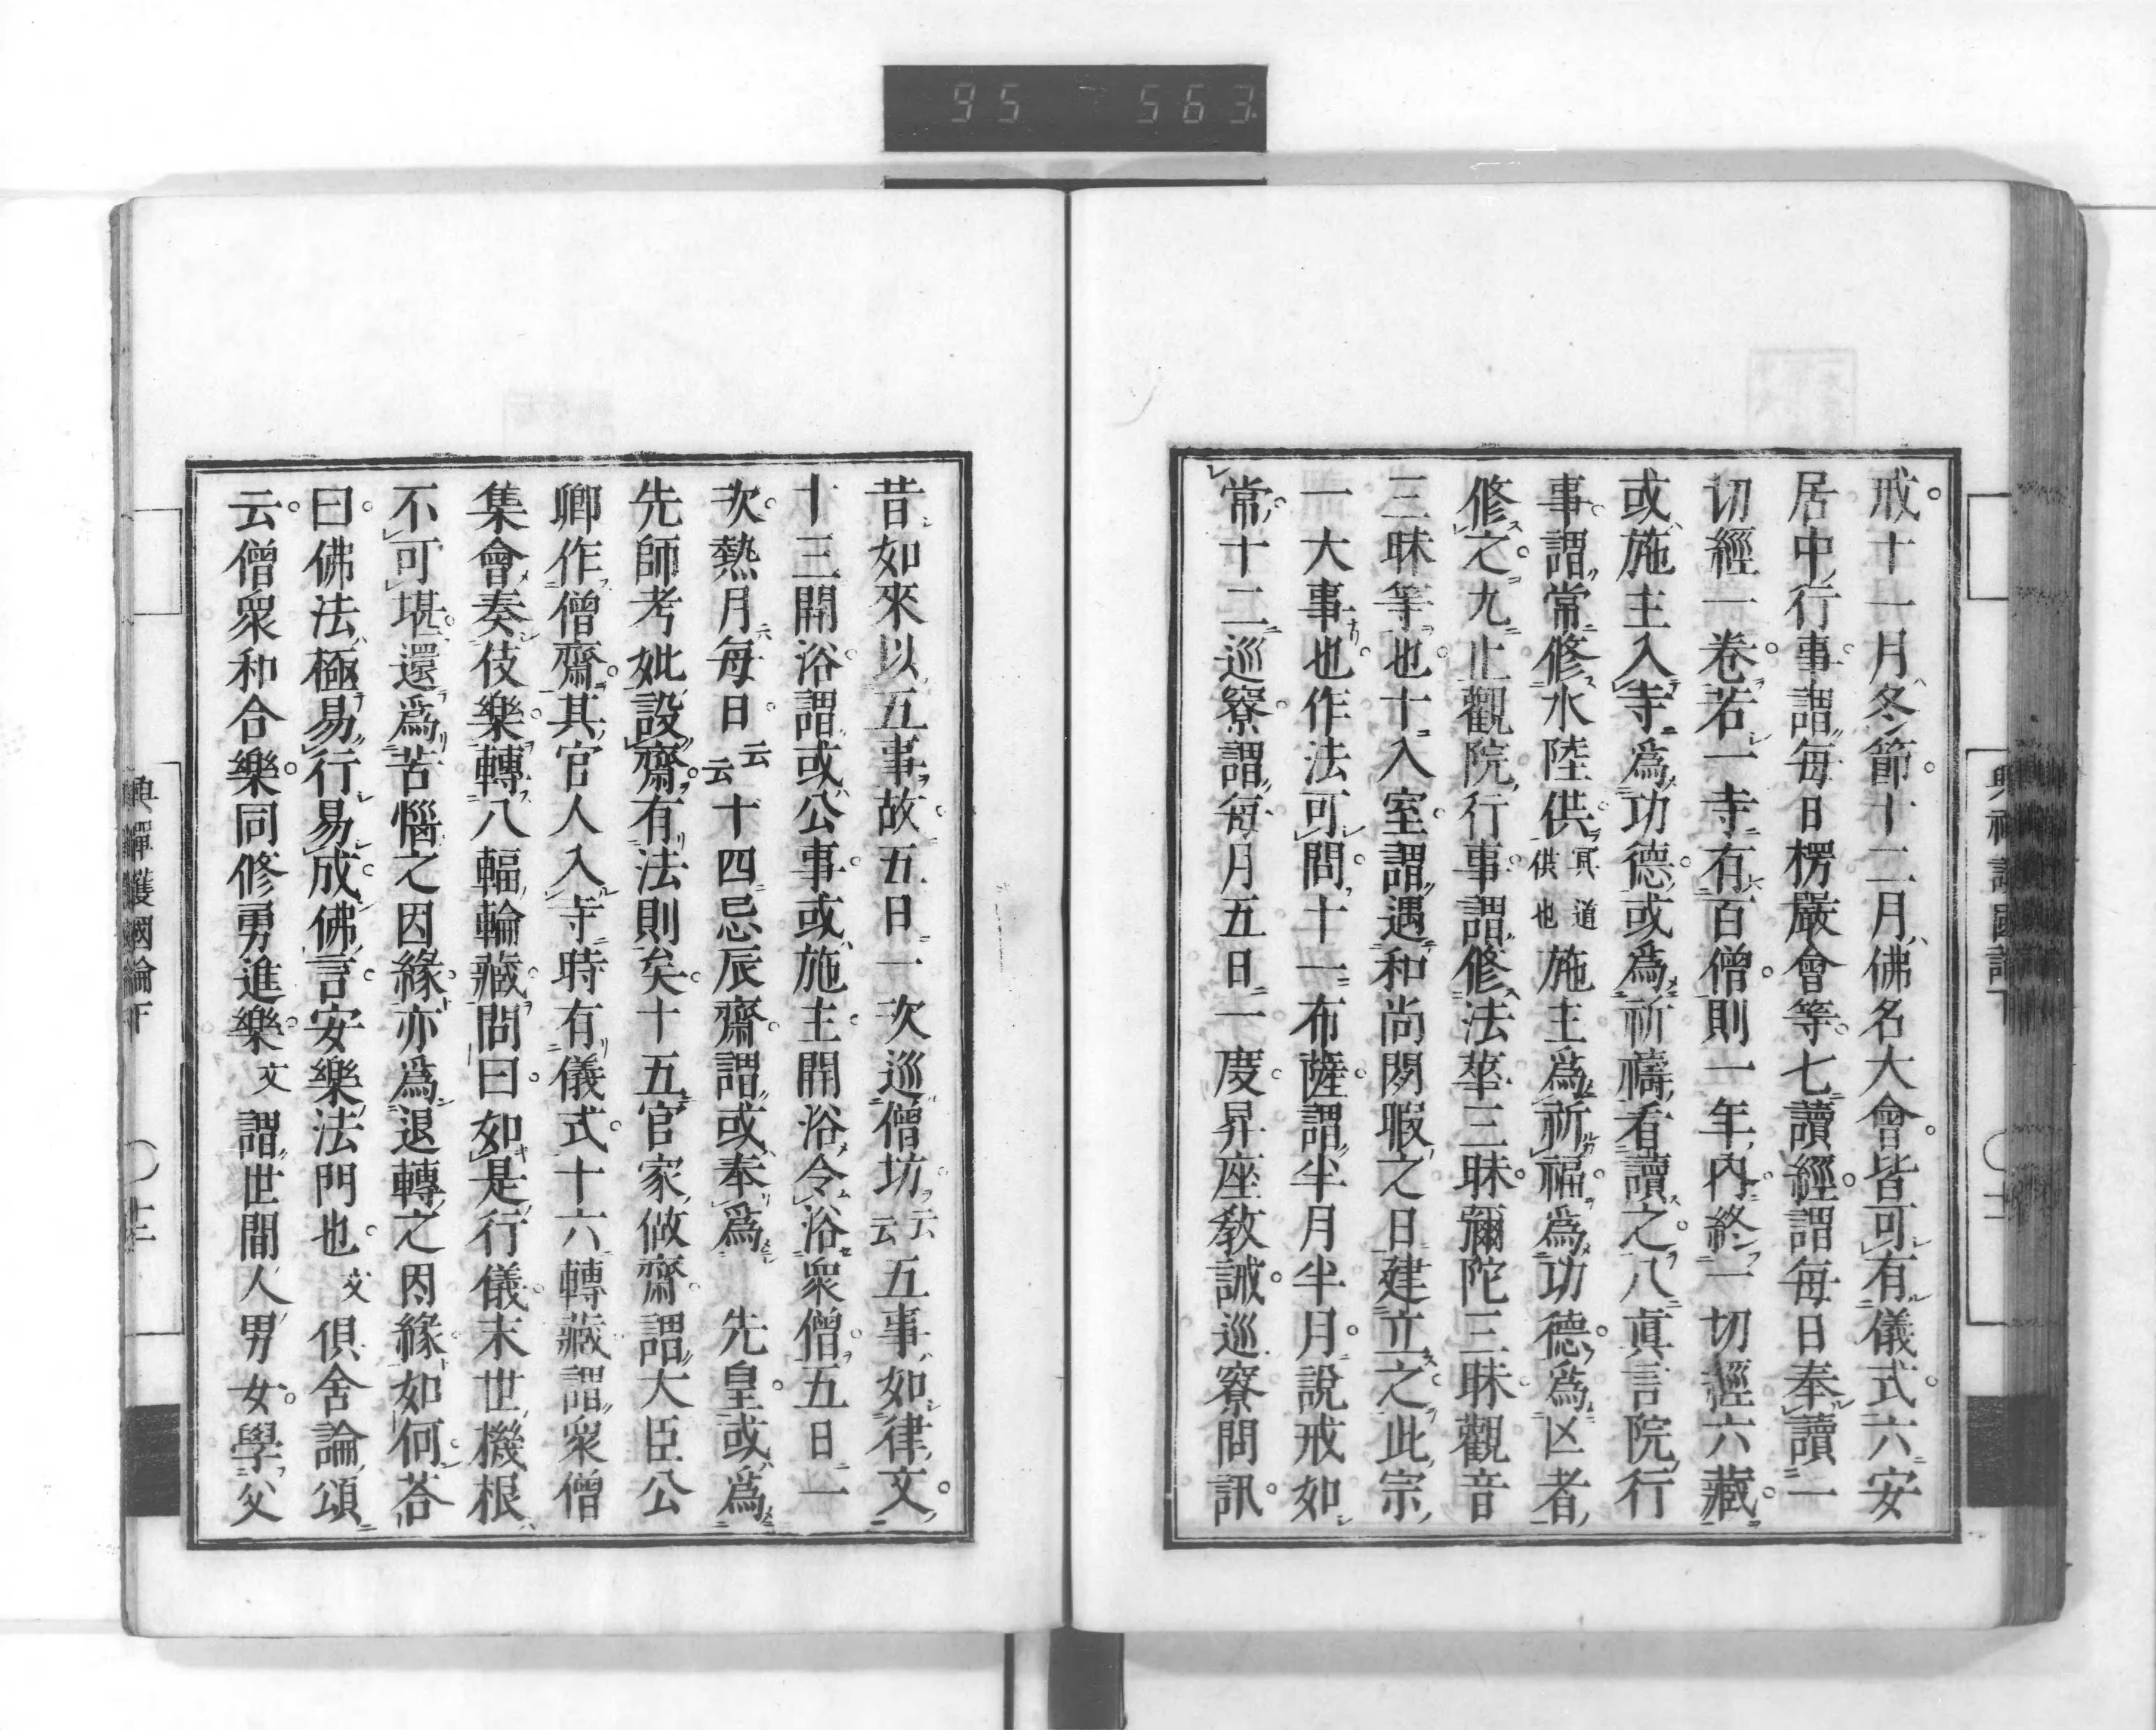 95 563
戒十一月冬節十二月佛名大會皆可有儀式六安
居中行事謂每日楞嚴會等七讀經謂每日奉讀一
切經一卷若一寺有百僧則一年內終一切經六藏
或施主入寺爲功德或爲祈禱看讀之八眞言院行
事謂常修水陸供冥道供也施主爲祈福爲功德爲亡者
修之九止觀院行事謂修法華三昧彌陀三昧觀音
三昧等也十入室謂遇和尚閑暇之日建立之此宗
一大事也作法可問十一布薩謂半月半月說戒如
常十二巡寮謂每月五日一度昇座教誡巡寮問訊
昔如來以五事故五日一次巡僧坊云云五事如律文
十三開浴謂或公事或施主開浴令浴衆僧五日一
次熱月每日云云十四忌辰齋謂或奉爲　先皇或爲
先師考妣設齋有法則矣十五官家做齋謂大臣公
卿作僧齋其官人入寺時有儀式十六轉藏謂衆僧
集會奏伎樂轉八輻輪藏問曰如是行儀末世機根
不可堪還爲苦惱之因緣亦爲退轉之因緣如何荅
曰佛法極易行易成佛言安樂法門也文俱舍論頌
云僧衆和合樂同修勇進樂文謂世間人男女學父
興禪護國論下　〇十三